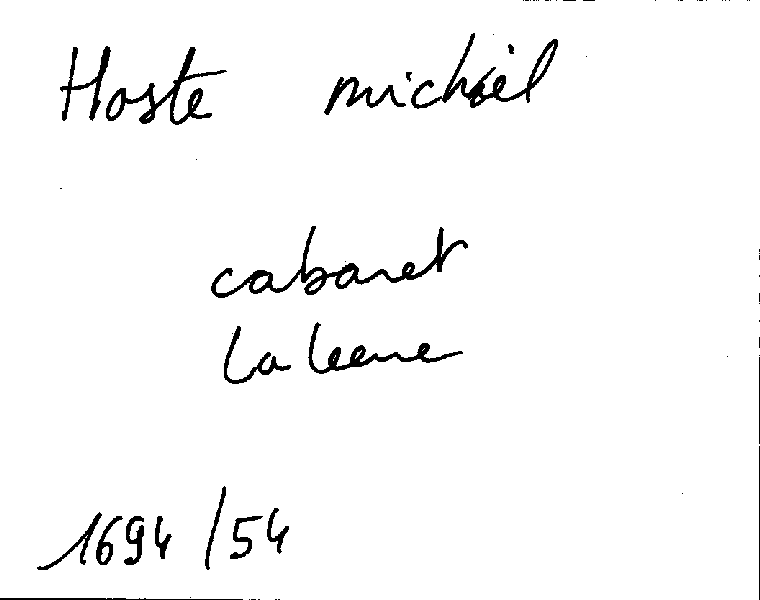 Hoste michiel
cabaret
La leene
1694/54